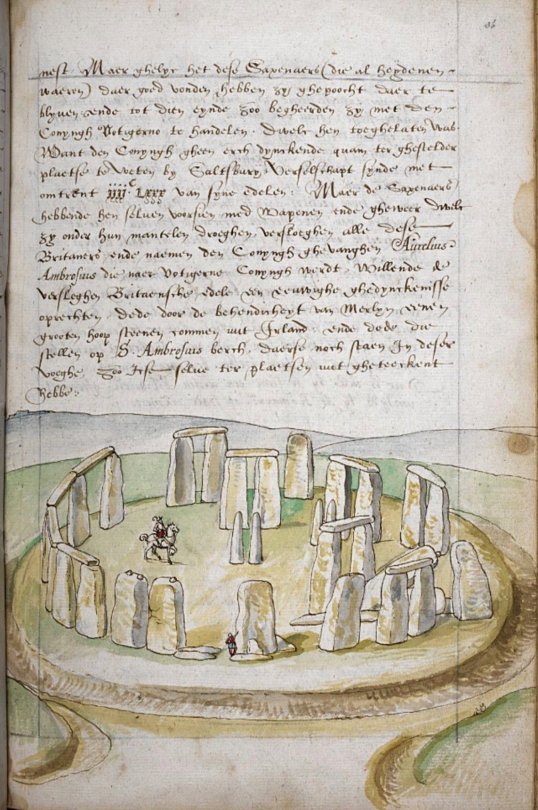 36
nest. Maer ghelyc het dese Saxenaers (die al heydenen
waeren) daer goed vonden hebben zy ghepoocht daer te
blyven ende tot dien eynde zoo begheerden zy met den
Conyngh Votigerno te handelen. dwelc hen toeghelaten was.
Want den Conyngh gheen erch dynckende quam ter ghestelder
plaetse te weten by Saltsbury verselschapt synde met
omtrent iiijᶜ LXXX van syne edelen. Maer de Saxenaers
hebbende hen selven voorsien med wapenen ende gheweer dwelc
zy onder hun mantelen droeghen, versloeghen alle dese
Britaners ende naemen den Conyngh ghevanghen. Aurelius
Ambrosius die naer Votigerne Conyngh werdt, willende de
versleghen Britaensche edele een eeuwighe ghedynckenisse
oprechten, dede door de behendicheyt van Merlyn eenen
grooten hoop steenen commen uut Irland ende dede die
stellen op S. Ambrosius berch, daerse noch staen in deser
voeghe, zoo icse selve ter plaetsen uut gheteeckent
hebbe.